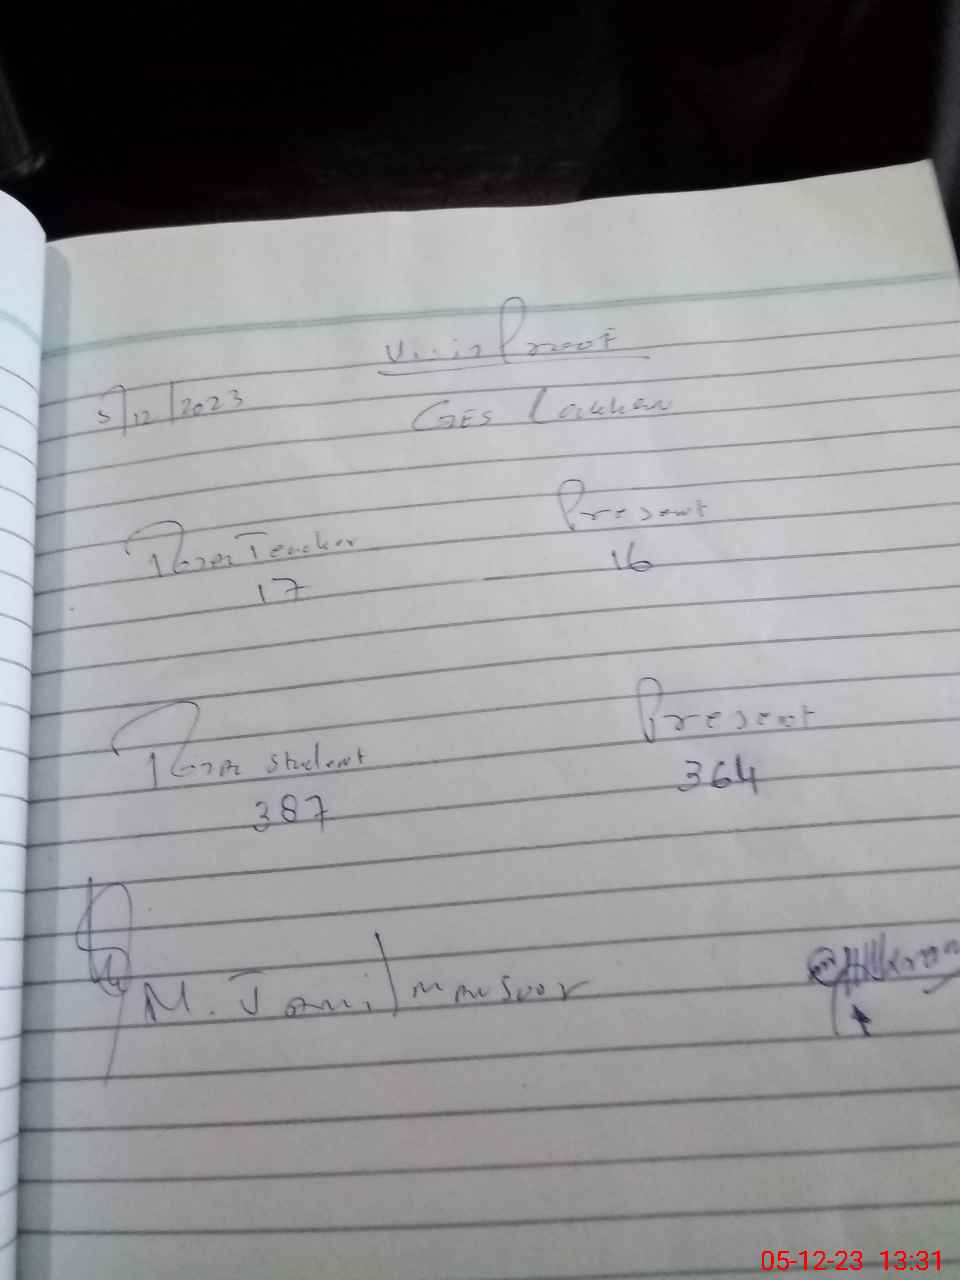 Visit Proof
5/12/2023
GES Lakhan
Teacher Present
17 16
Student Present
387 364
M. Jamil Mansoor
05-12-23 13:31